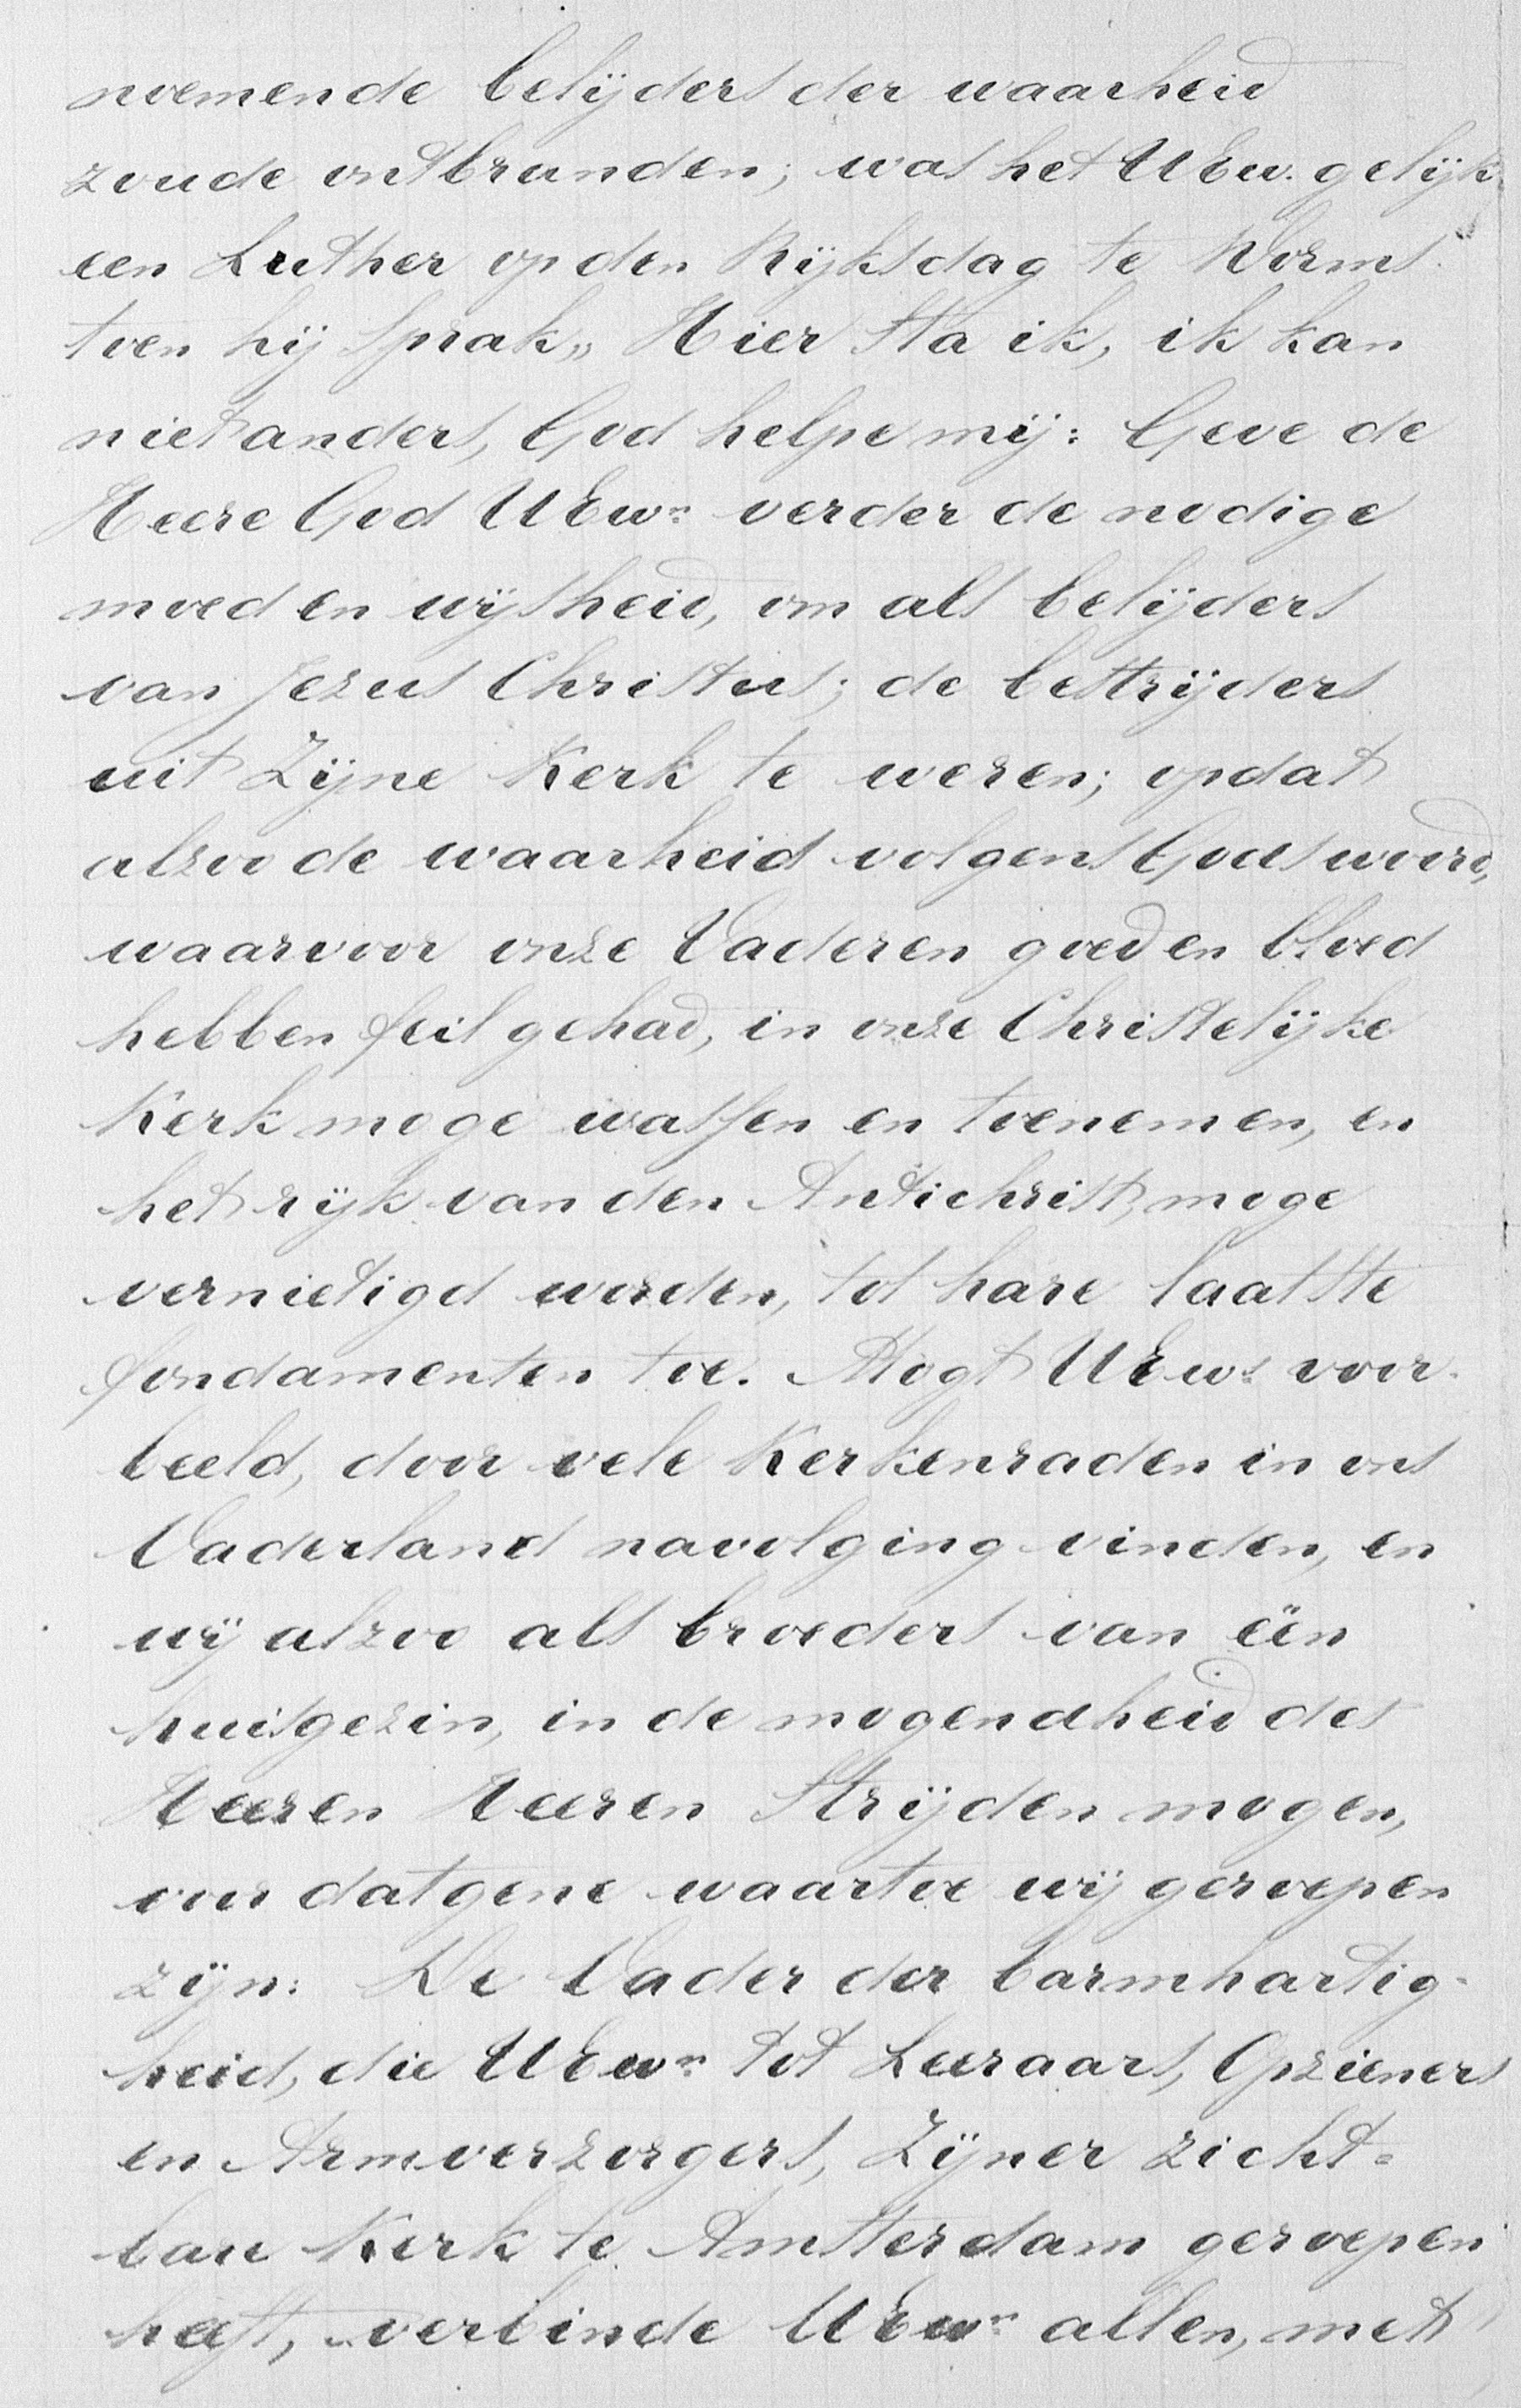 noemende belijders der waarheid
zoude ontbranden; was het UEw. gelijk
een Luther op den Rijksdag te Worms.
toen hij sprak „ Hier sta ik, ik kan
niet anders, God helpe mij: Geve de
Heere God UEwn verder de nodige
moed en wijsheid, om als belijders
van Jezus Christus; de bestrijders
uit Zijne Kerk te weren; opdat
alzoo de waarheid volgens Gods woord,
waarvoor onze Vaderen goed en bloed
hebben feil gehad, in onze Christelijke
Kerk moge wassen en toenemen, en
het rijk van den Antichrist, moge
vernietigd worden, tot hare laatste
fondamenten toe. Mogt UEws voor-
beeld, door vele Kerkenraden in ons
Vaderland navolging vinden, en
wij alzoo als broeders van één
huisgezin, in de mogendheid des
Heeren Heeren strijden mogen,
voor datgene waartoe wij geroepen
zijn: De Vader der barmhartig-
heid, die UEwn tot Leeraars, Opzieners
en Armverzorgers, Zijner zicht=
bare Kerk te Amsterdam geroepen
heeft, verbinde UEwn allen, met